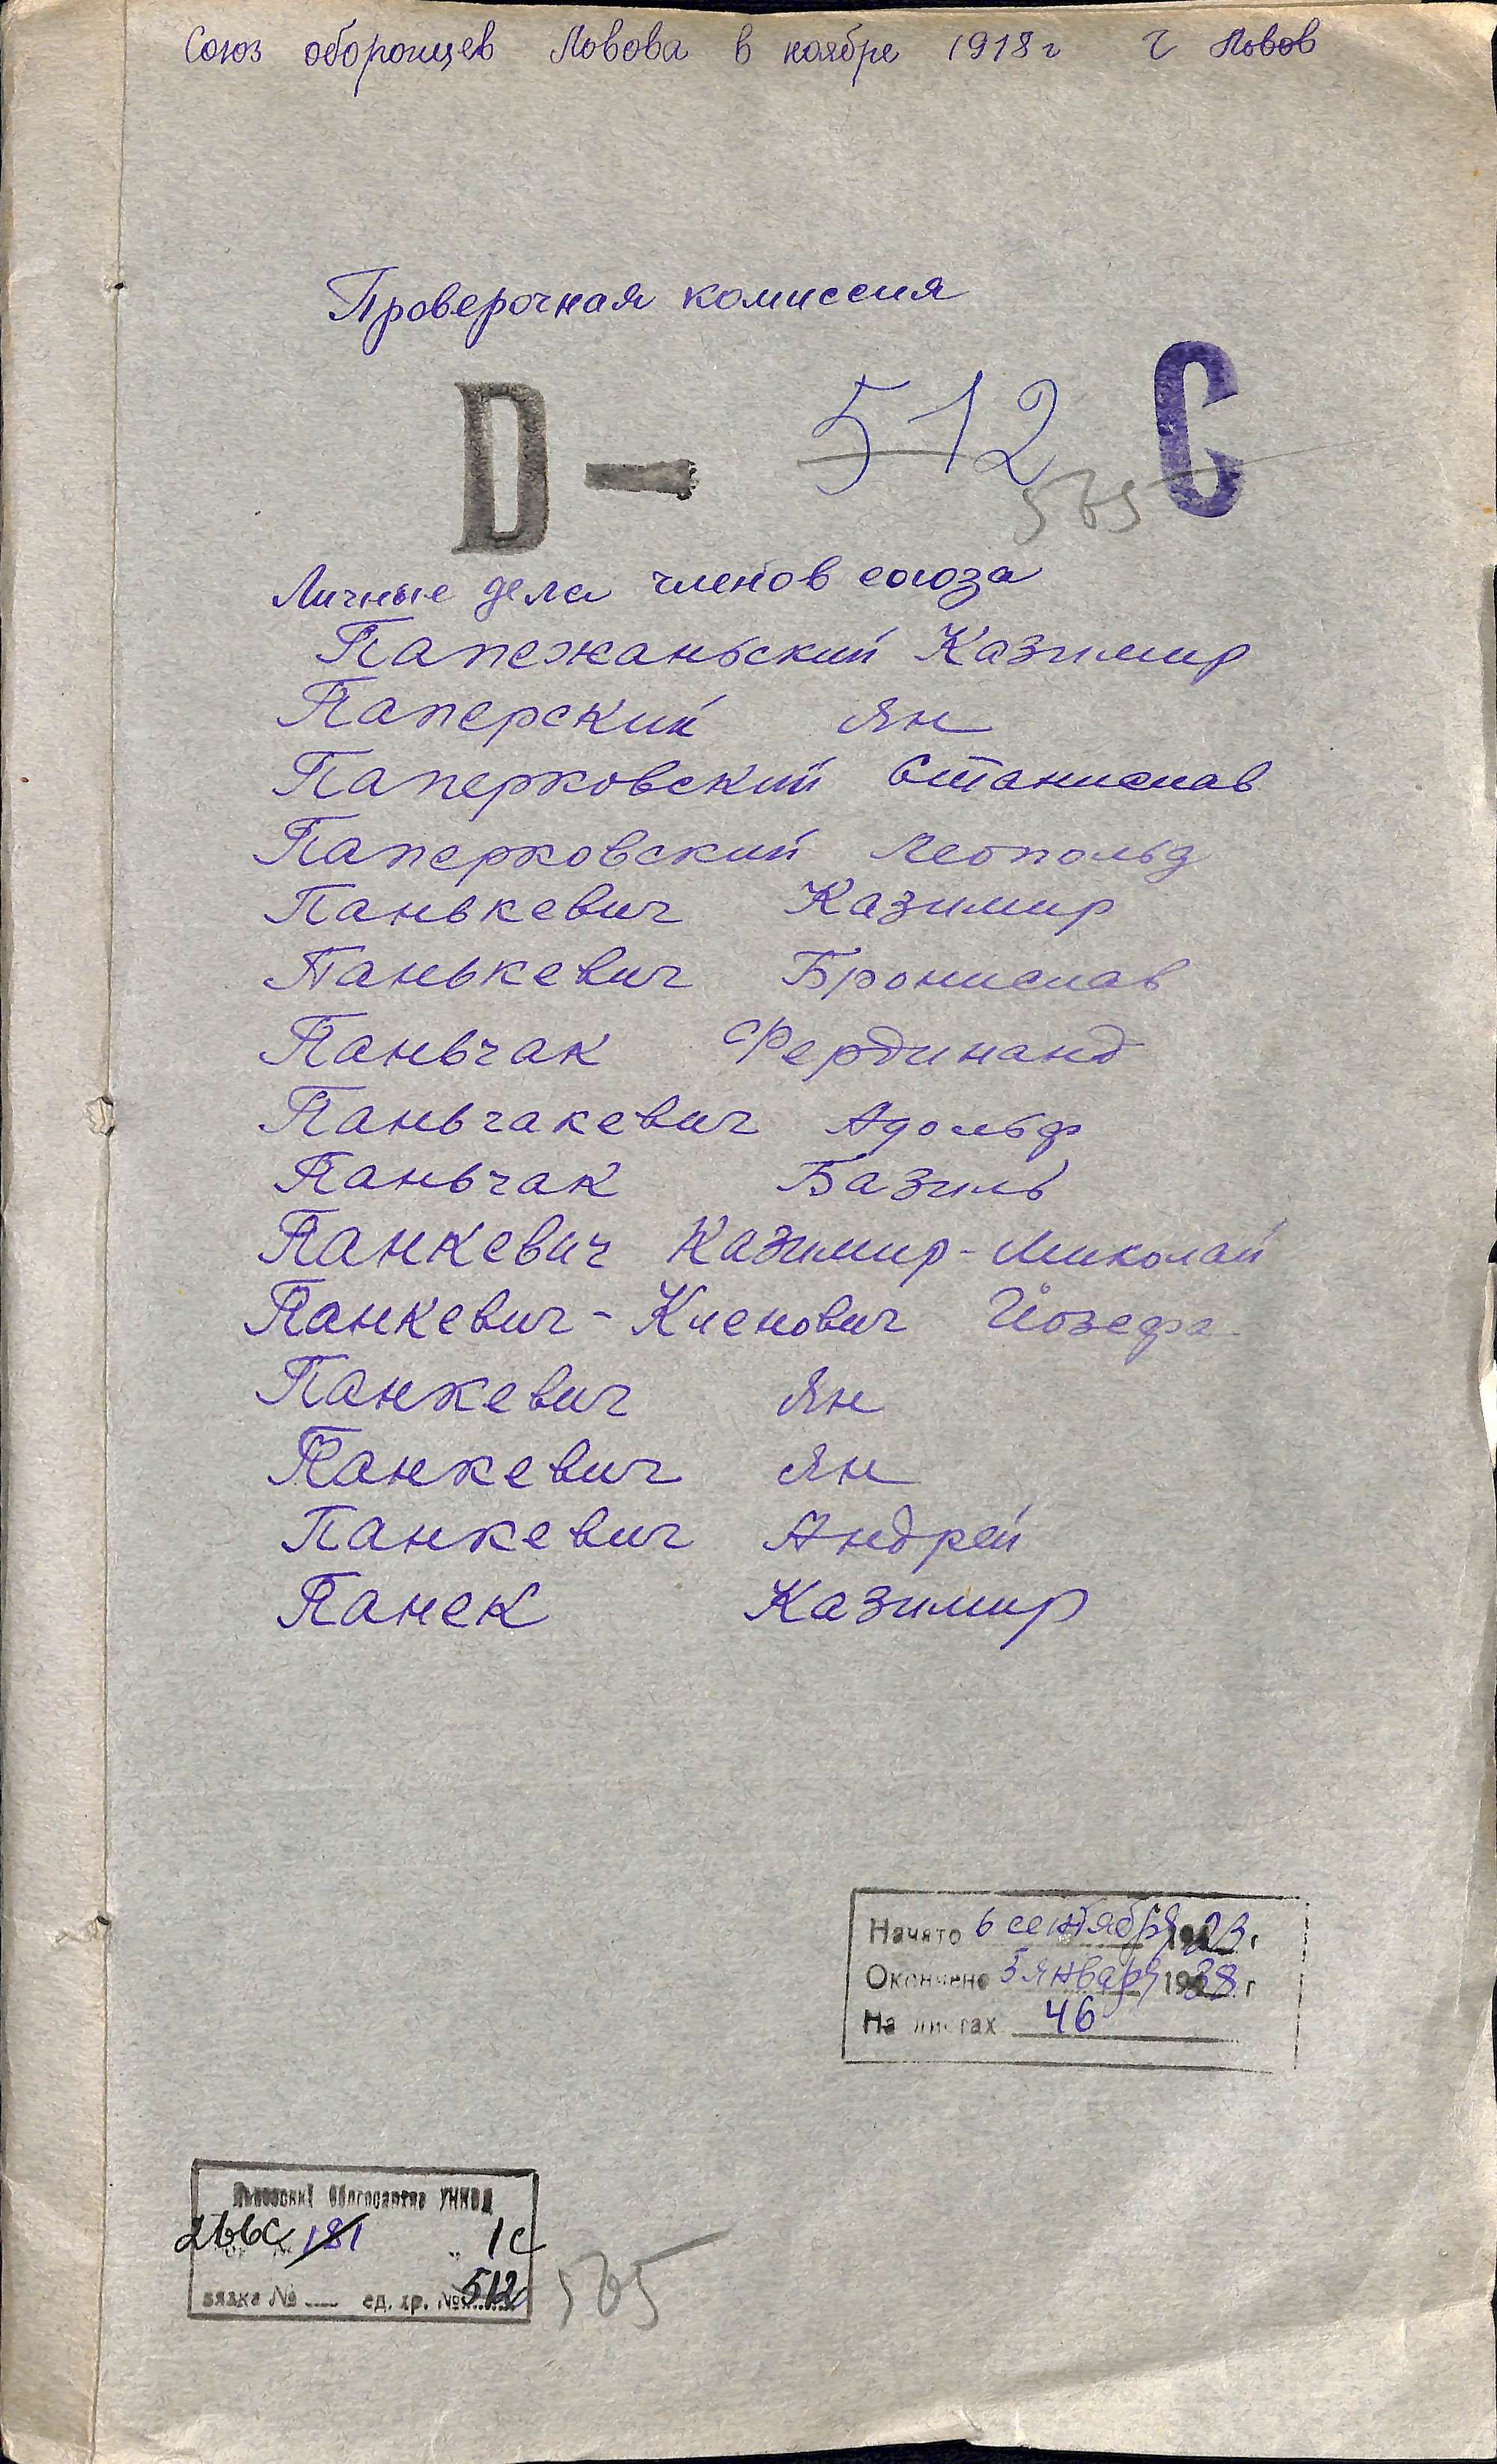 Союз оборонцев Львова в ноябре 1918 г г Львов
Проверочная комиссия
D — 512 C
565
Личные дела членов союза
Папежаньский Казимир
Паперский Ян
Паперковский Станислав
Паперковский Леопольд
Панькевич Казимир
Панькевич Бронислав
Паньчак Фердинанд
Паньчакевич Адольф
Паньчак Базиль
Панкевич Казимир-Миколай
Панкевич-Кленович Йозефа
Панкевич Ян
Панкевич Ян
Панкевич Андрей
Панек Казимир
Начато 6 сентября 1923 г
Окончено 5 января 1938 г
На листах 46
Облгосархив УНКВД
266с 181 1с
вязка № ед. хр. № 512
565